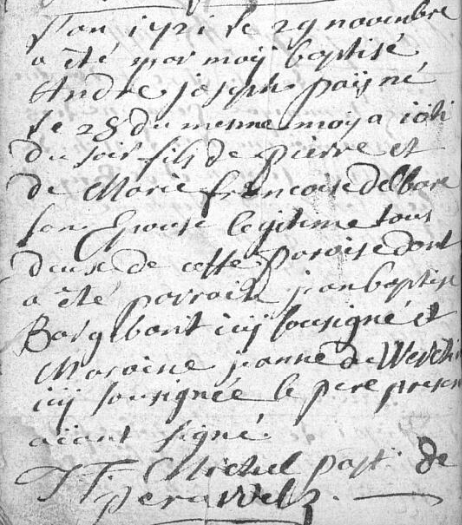 L'an 1721 le 29 novembre
a été par moy baptisé
André joseph païs né
le 28 du mesme moy a
du soir fils de pierre et
de Marie francoise delbare
son Epouse legitime tous
deux de cette paroise dont
a été parrain jean baptiste
icÿ sousigné et
Maraine jeanne de
icÿ sousignée le pere presen
aïant signé.
Michel past. de
peruwelz.